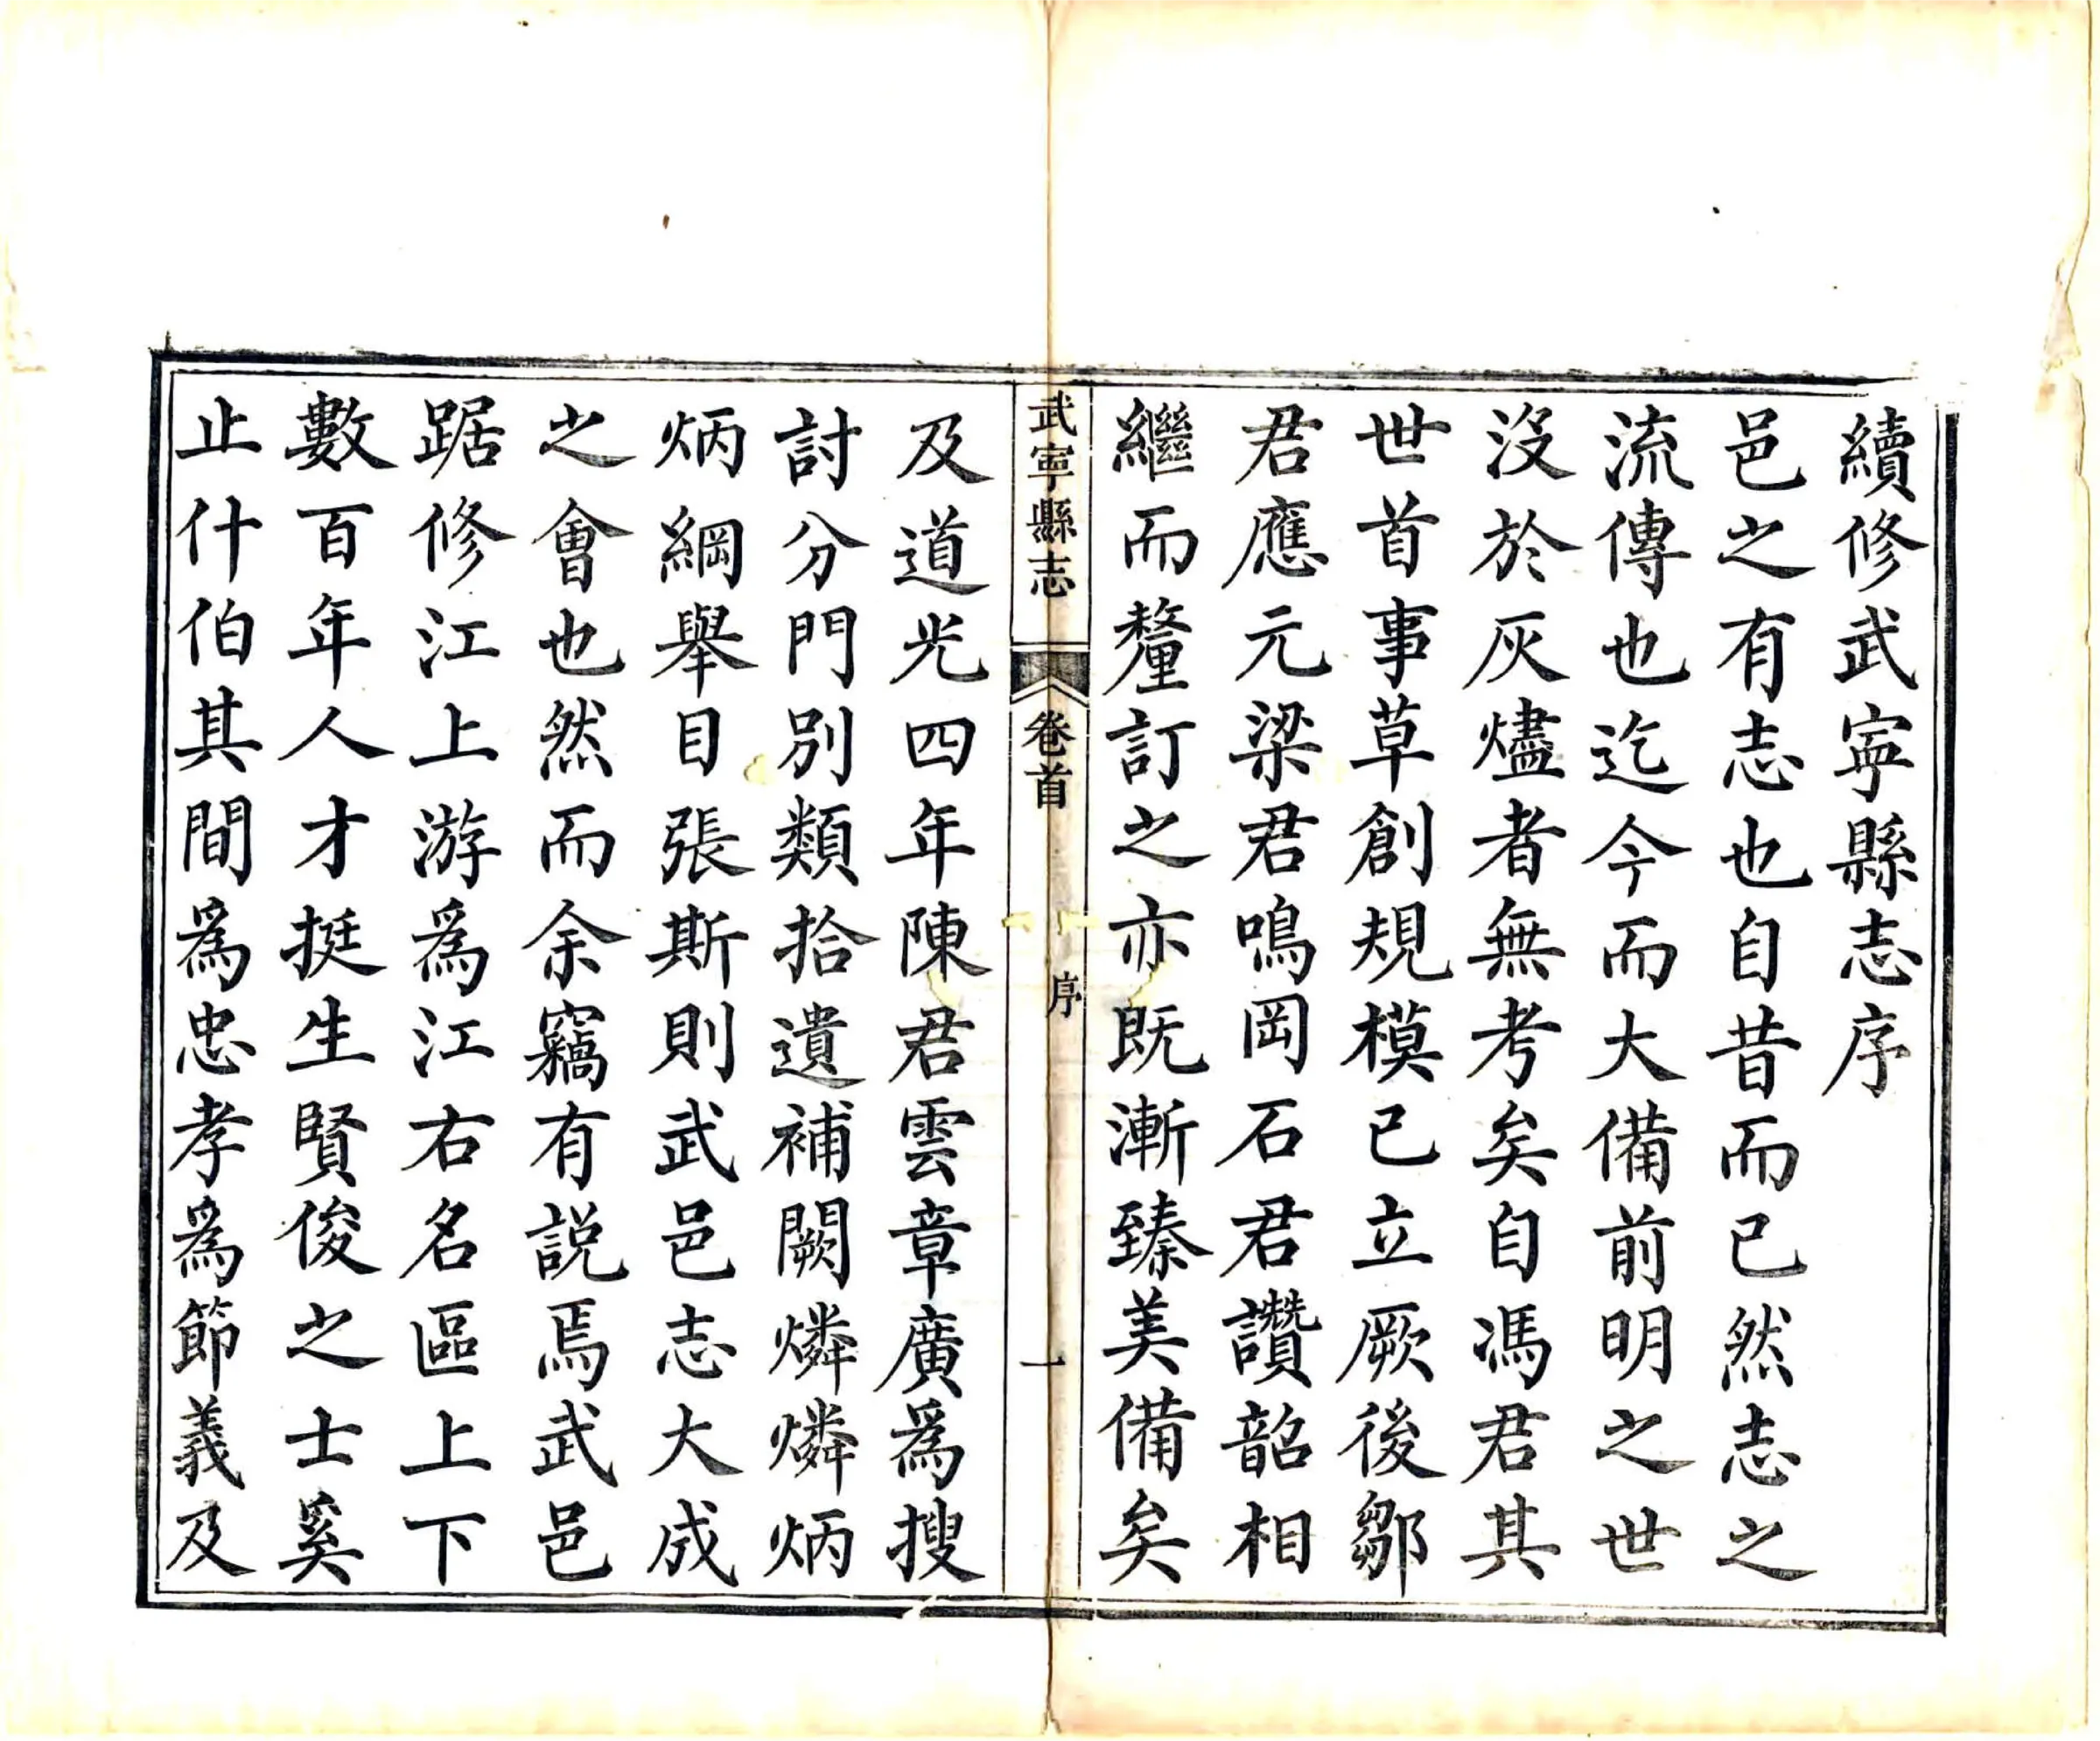 續修武寧縣志序
邑之有志也自昔而已然志之
流傳也迄今而大備前明之世
沒於灰燼者無考矣自馮君其
世首事草創規模已立厥後鄒
君應元梁君鳴岡石君讚韶相
繼而釐訂之亦既漸臻美備矣
武寧縣志
卷首
序
一
及道光四年陳君雲章廣爲搜
討分門別類拾遺補闕燐燐炳
炳綱舉目張斯則武邑志大成
之會也然而余竊有説焉武邑
踞修江上游爲江右名區上下
數百年人才挺生賢俊之士奚
止什伯其間爲忠孝爲節義及